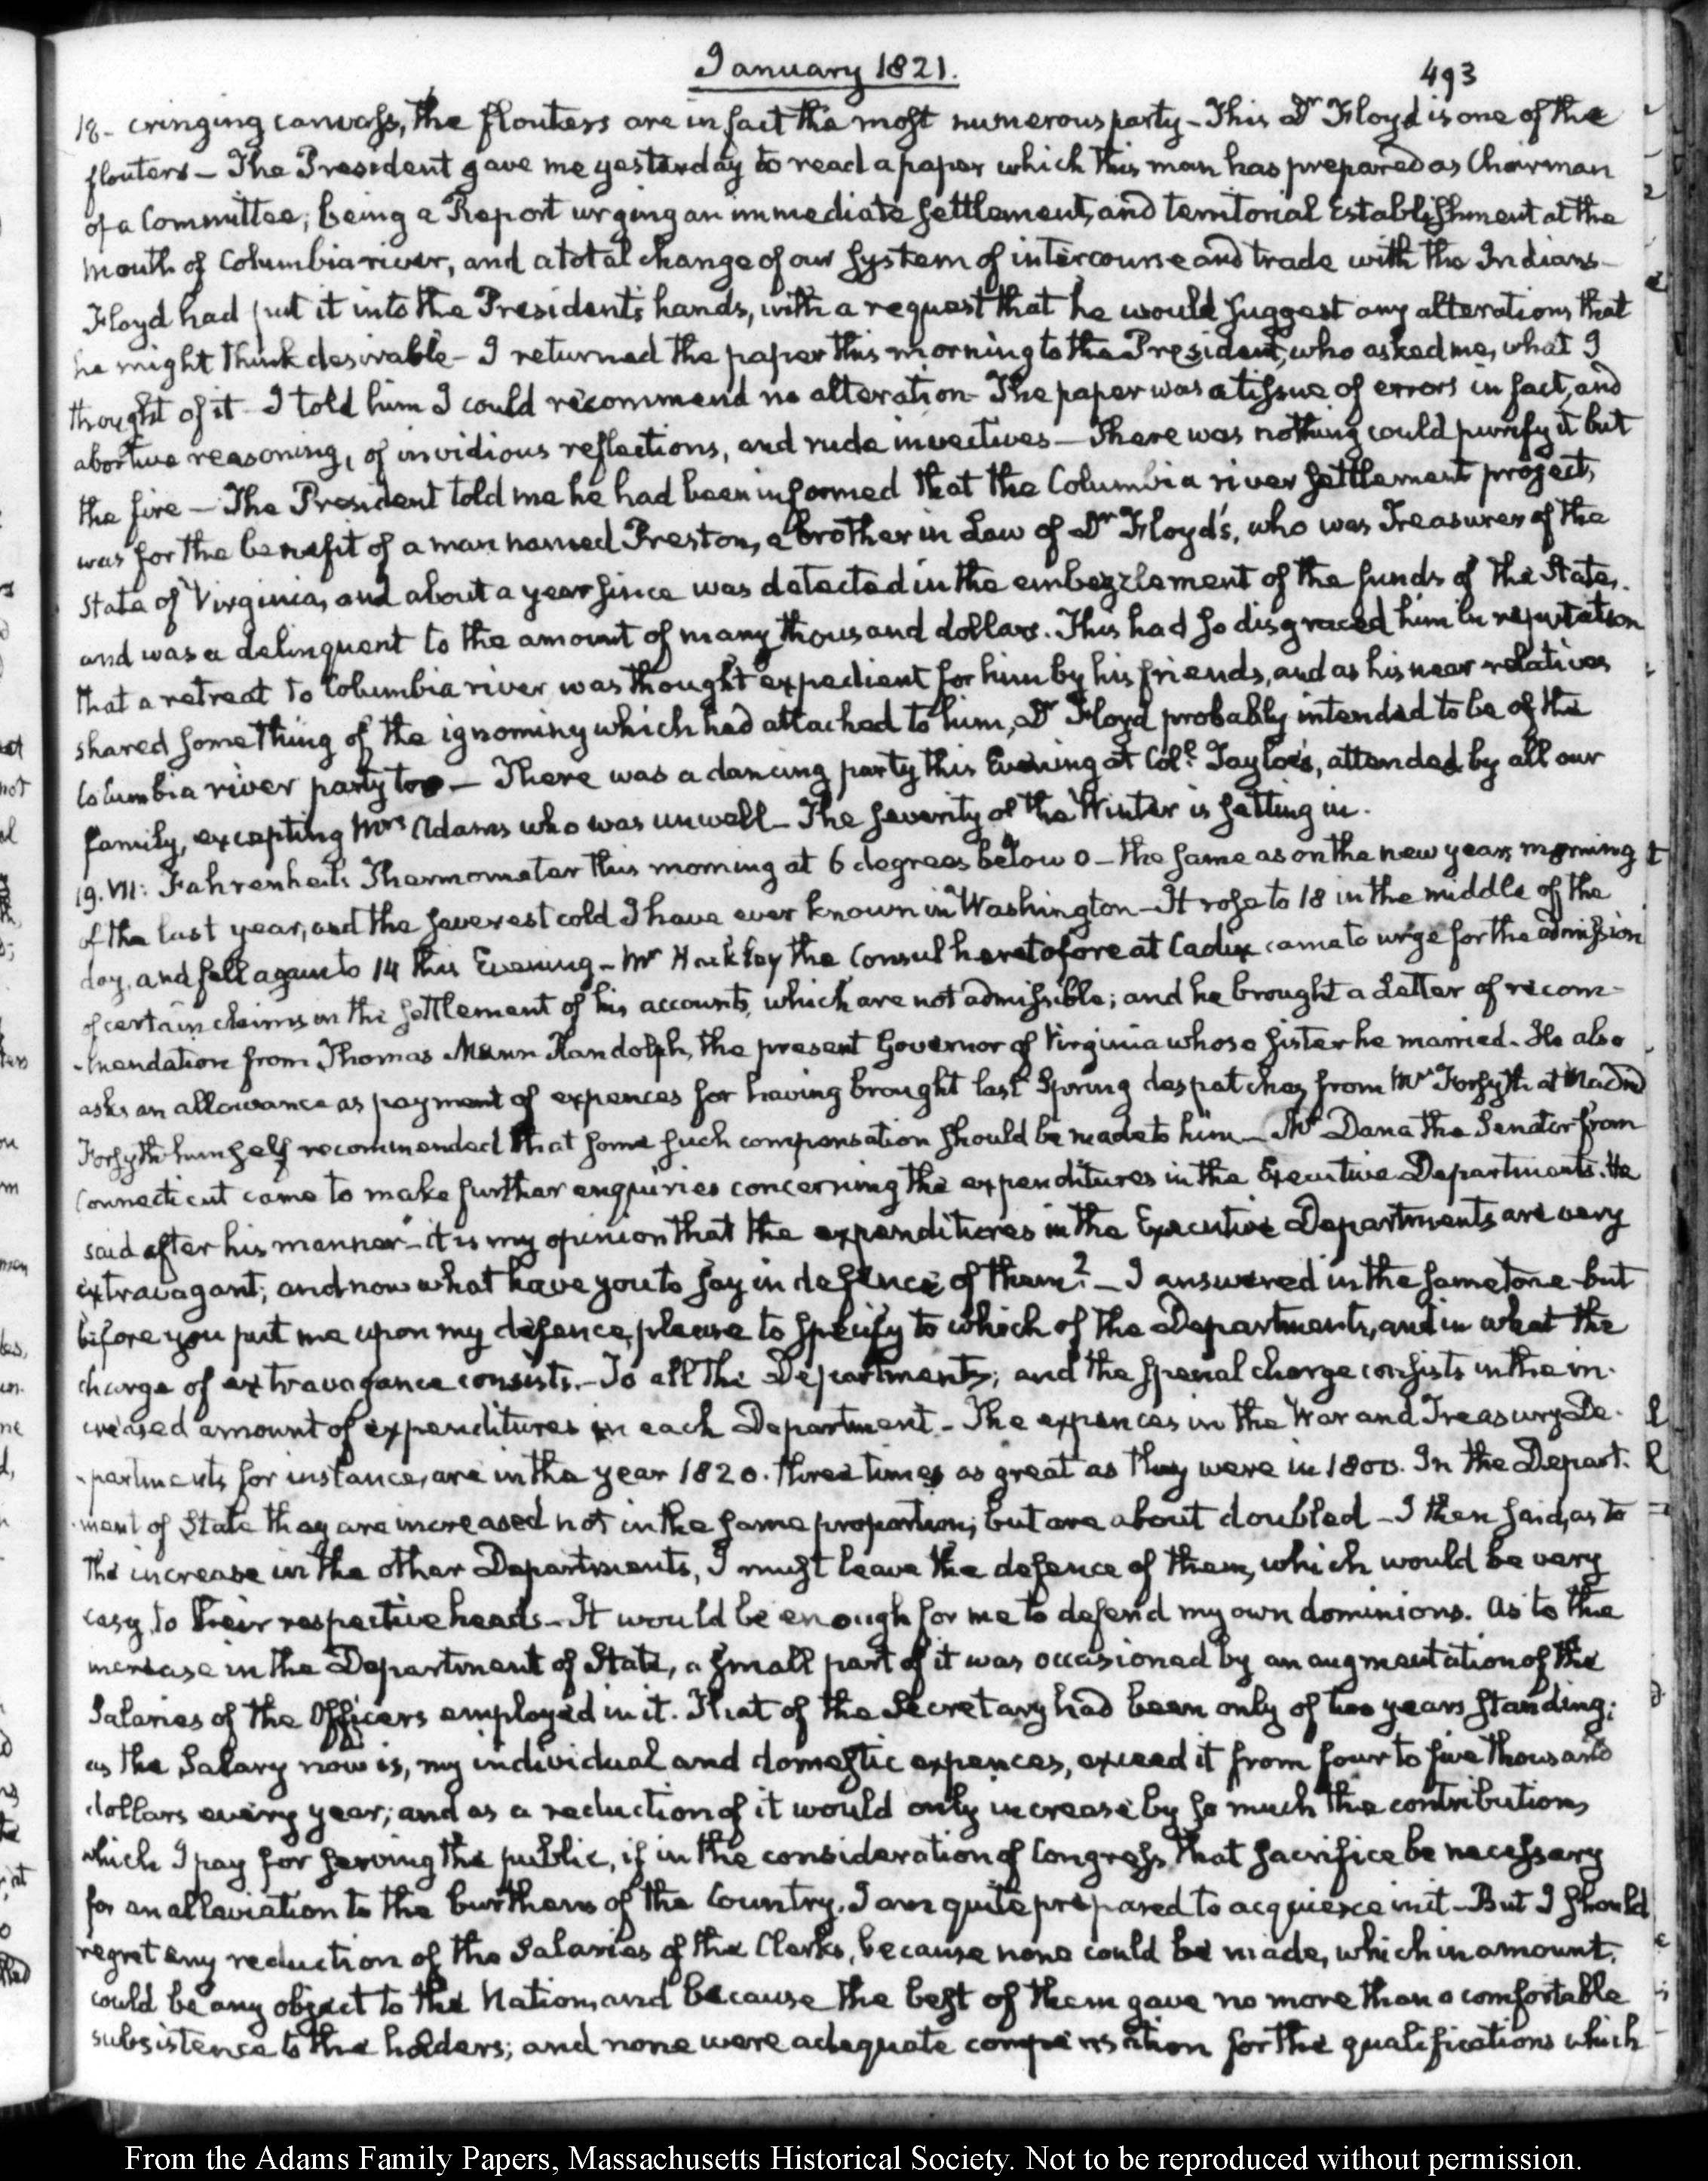 January 1821.
493
18- cringing canvass, the flouters are in fact the most numerous party - This Dr Floyd is one of the
flouters - The President gave me yesterday to read a paper which this man has prepared as Chairman
of a Committee; being a Report urging an immediate settlement, and territorial Establishment at the
mouth of Columbia river, and a total change of our system of intercourse and trade with the Indians -
Floyd had put it into the President's hands, with a request that he would suggest any alterations that
he might think desirable - I returned the paper this morning to the President, who asked me, what I
thought of it - I told him I could recommend no alteration - The paper was a tissue of errors in fact, and
abortive reasoning, of invidious reflections, and rude invectives - There was nothing could purify it but
the fire - The President told me he had been informed that the Columbia river settlement project,
was for the benefit of a man named Preston, a brother in Law of Dr Floyd's, who was Treasurer of the
State of Virginia, and about a year since was detected in the embezzlement of the funds of the State,
and was a delinquent to the amount of many thousand dollars. This had so disgraced him in reputation
that a retreat to Columbia river was thought expedient for him by his friends, and as his near relatives
shared something of the ignominy which had attached to him, Dr Floyd probably intended to be of the
Columbia river party too - There was a dancing party this Evening at Coll Tayloe's, attended by all our
family, excepting Mrs Adams who was unwell - The severity of the Winter is setting in.
19. VII: Fahrenheit's Thermometer this morning at 6 degrees below 0 - the same as on the new years morning
of the last year, and the severest cold I have ever known in Washington - It rose to 18 in the middle of the
day, and fell again to 14 this Evening - Mr Hackley the Consul heretofore at Cadix came to urge for the admission
of certain claims in the settlement of his accounts, which are not admissible; and he brought a Letter of recom-
-mendation from Thomas Mann Randolph, the present Governor of Virginia whose sister he married. He also
asks an allowance as payment of expences for having brought last Spring despatches from Mr Forsyth at Madrid
Forsyth himself recommended that some such compensation should be made to him - Mr Dana the Senator from
Connecticut came to make further enquiries concerning the expenditures in the Executive Departments. He
said after his manner - it is my opinion that the expenditures in the Executive Departments are very
extravagant; and now what have you to say in defence of them? - I answered in the same tone - but
before you put me upon my defence, please to specify to which of the Departments, and in what the
charge of extravagance consists. - To all the Departments; and the special charge consists in the in-
creased amount of expenditures in each Department - The expences in the War and Treasury De-
-partments for instance, are in the year 1820. three times as great as they were in 1800. In the Depart-
-ment of State they are increased not in the same proportion; but are about doubled - I then said, as to
the increase in the other Departments, I must leave the defence of them, which would be very
easy, to their respective heads - It would be enough for me to defend my own dominions. As to the
increase in the Department of State, a small part of it was occasioned by an augmentation of the
Salaries of the Officers employed in it. That of the Secretary had been only of two years standing;
as the Salary now is, my individual and domestic expences, exceed it from four to five thousand
dollars every year; and as a reduction of it would only increase by so much the contribution,
which I pay for serving the public, if in the consideration of Congress, that sacrifice be necessary
for an alleviation to the burthens of the Country, I am quite prepared to acquiesce in it - But I should
regret any reduction of the Salaries of the Clerks, because none could be made, which in amount,
could be any object to the Nation, and because the best of them gave no more than a comfortable
subsistence to the holders; and none were adequate compensation for the qualifications which
From the Adams Family Papers, Massachusetts Historical Society. Not to be reproduced without permission.